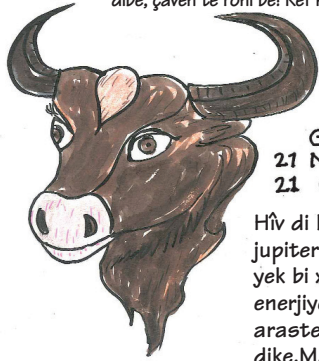 dibe, çavên te ronî be! Kêf
G
21
21
Hîv di
jupiter
yek bi
enerjiy
araste
dike.M